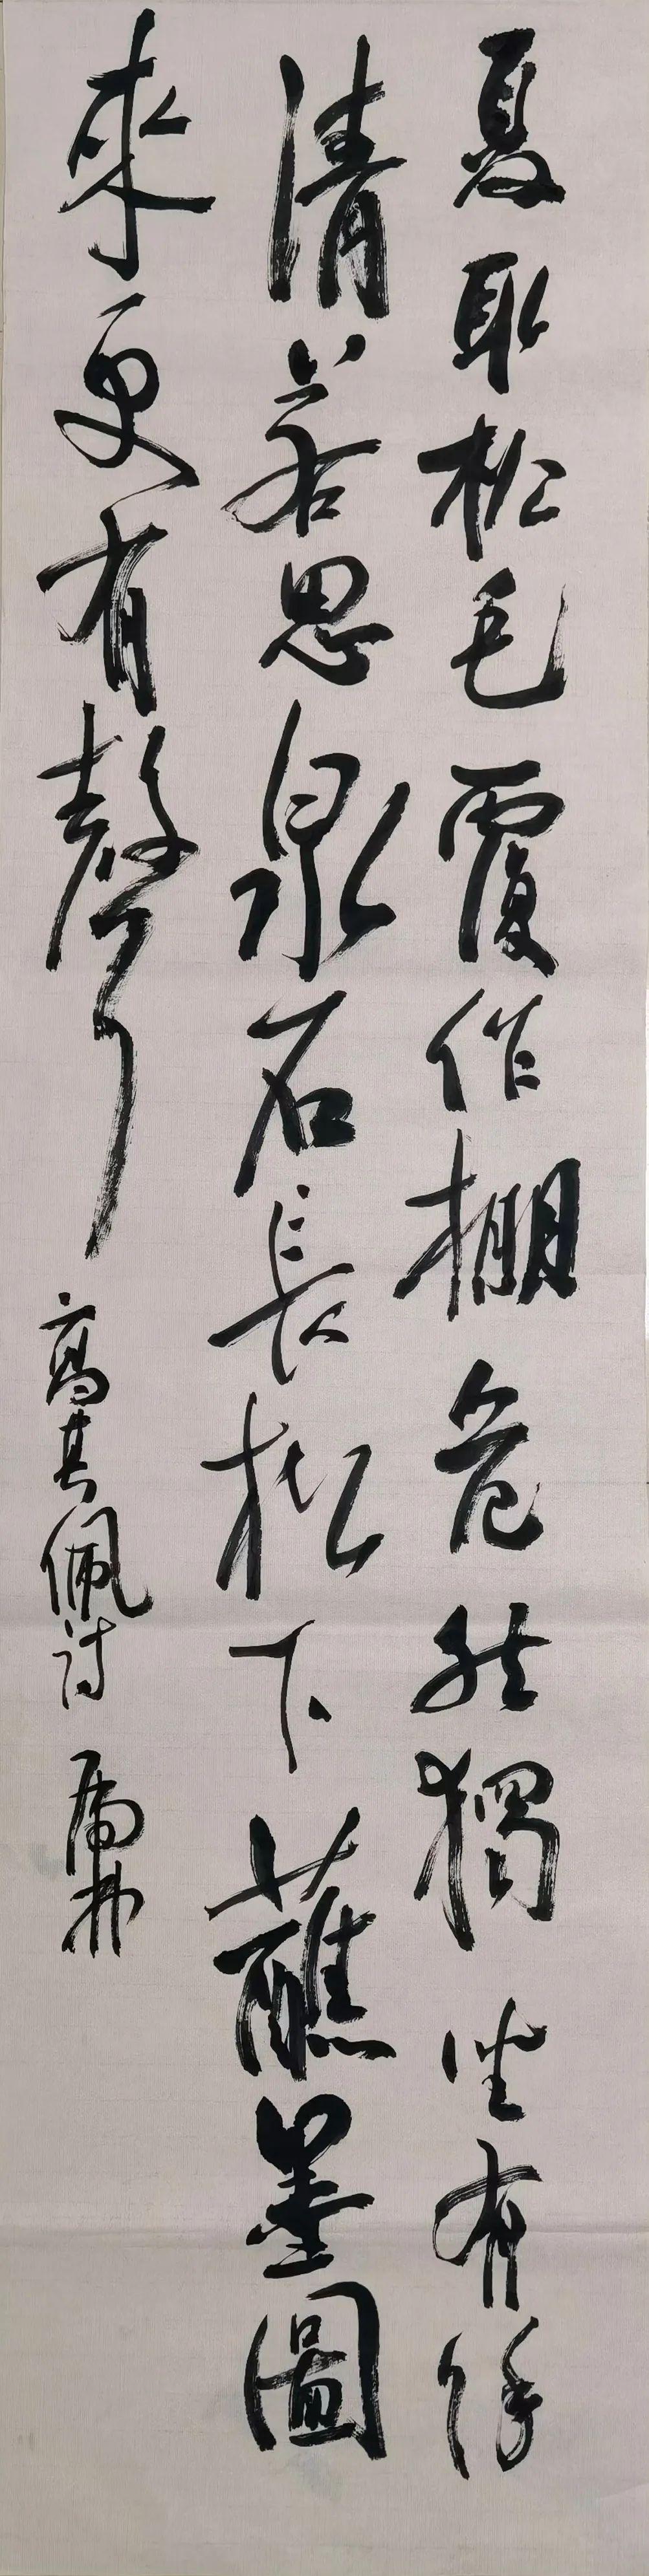 夏取松毛覆作棚危然獨坐有余
清若思泉石長松下蘸墨圖
來更有聲 高其佩詩